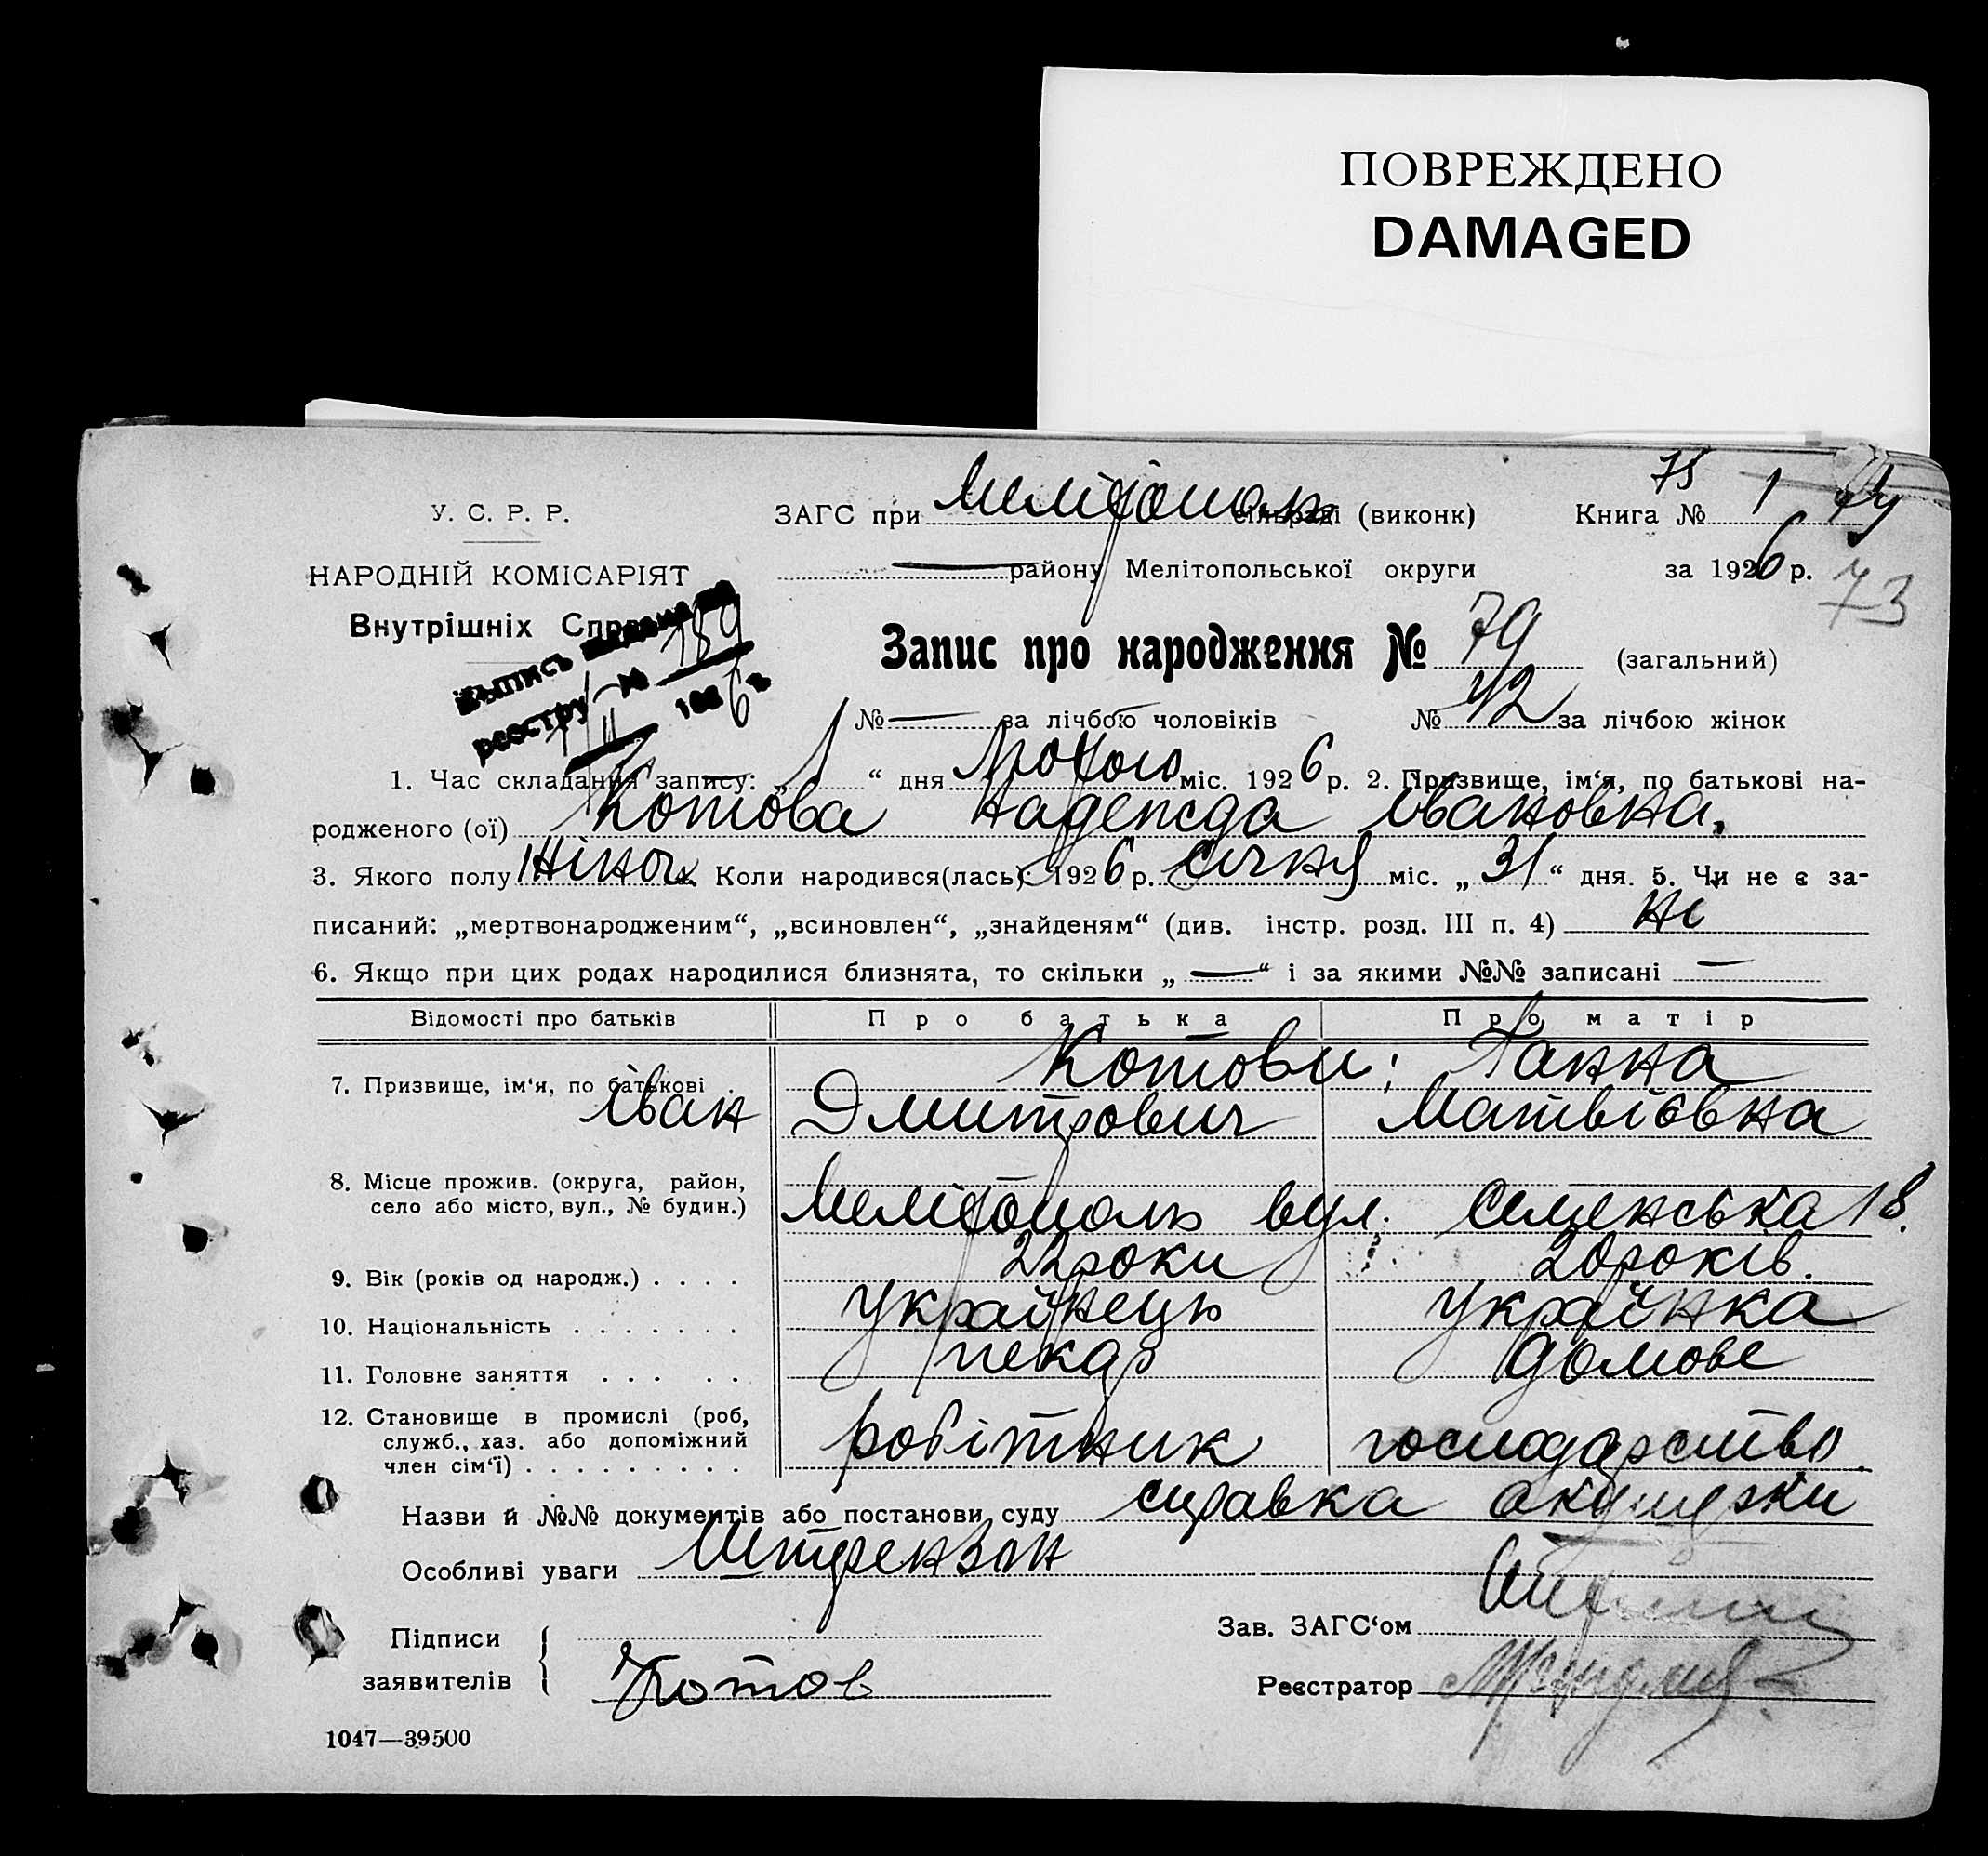 ПОВРЕЖДЕНО
DAMAGED
75
У. С. Р. Р.
ЗАГС при Мелітополь сільраді (виконк) Книга № 1 74
НАРОДНІЙ КОМІСАРІЯТ
району Мелітопольської округи за 1926 р. 73
Внутрішніх Справ
Выпись
реестру № 189
1/II 1926 г
Запис про народження № 79 (загальний)
№ — за лічбою чоловіків № 42 за лічбою жінок
1. Час складання запису: „ 1 “ дня Лютого міс. 1926 р. 2. Призвище, ім‘я, по батькові на-
родженого (ої) Котова Надежда Івановна,
3. Якого полу Жіноч. Коли народився(лась): 1926 р. січня міс. „ 31 “ дня. 5. Чи не є за-
писаний: „мертвонародженим“, „всиновлен“, „знайденям“ (див. інстр. розд. III п. 4) ні
6. Якщо при цих родах народилися близнята, то скільки „ — “ і за якими №№ записані —
Відомості про батьків Про батька Про матір
7. Призвище, ім‘я, по батькові . Котови; Ганна
Іван Дмитрович Матвієвна
8. Місце прожив. (округа, район,
село або місто, вул., № будин.) Мелітополь вул. 18.
9. Вік (років од народж.) . . . . 22 роки 20 років.
10. Національність . . . . . . . Українець Українка
11. Головне заняття . . . . . пекар домове
12. Становище в промислі (роб,
служб., хаз. або допоміжний
член сім‘ї) . . . . . . . . . робітник господарство.
Назви й №№ документів або постанови суду справка акушерки
Особливі уваги Штрензон
Підписи
заявителів
Зав. ЗАГС‘ом
Котов
Реєстратор
1047—39500